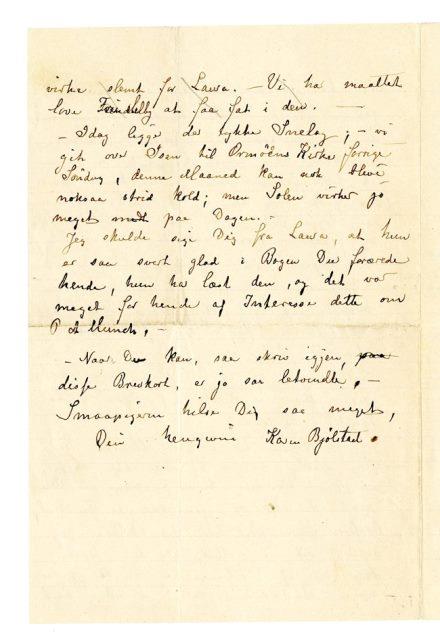 virke slemt for Laura. – Vi ha maattet
love at faa fat i den. —
– Idag ligge der tykke Snelag; – vi
gik over Isen til Ormöens Kirke forrige
Söndag, denne Maaned kan nok blive
noksaa strid kold; men Solen virker jo
meget midt paa Dagen. –
Jeg skulde sige Dig fra Laura, at hun
er saa svert glad i Bogen Du forærede
hende, hun ha læst den, og det var
meget for hende af Interesse dette om
P A Munch, –
– Naar Du kan, saa skriv igjen, paa
disse Brevkort, er jo saa letvindte, –
Smaapigerne hilse Dig saa meget,
Din hengivne Karen Bjölstad.